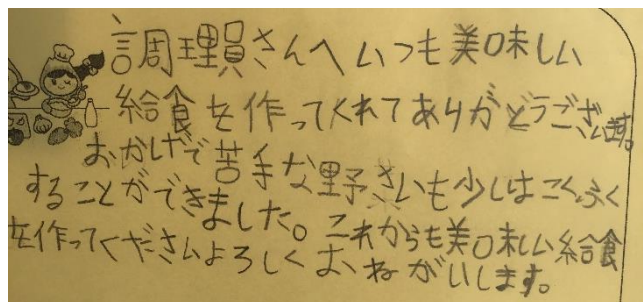 調理員さんへいつも美味しい
給食を作ってくれてありがとうございます。
おかげで苦手な野さいも少しはこくふく
することができました。これからも美味しい給食
を作ってくださいよろしくおねがいします。